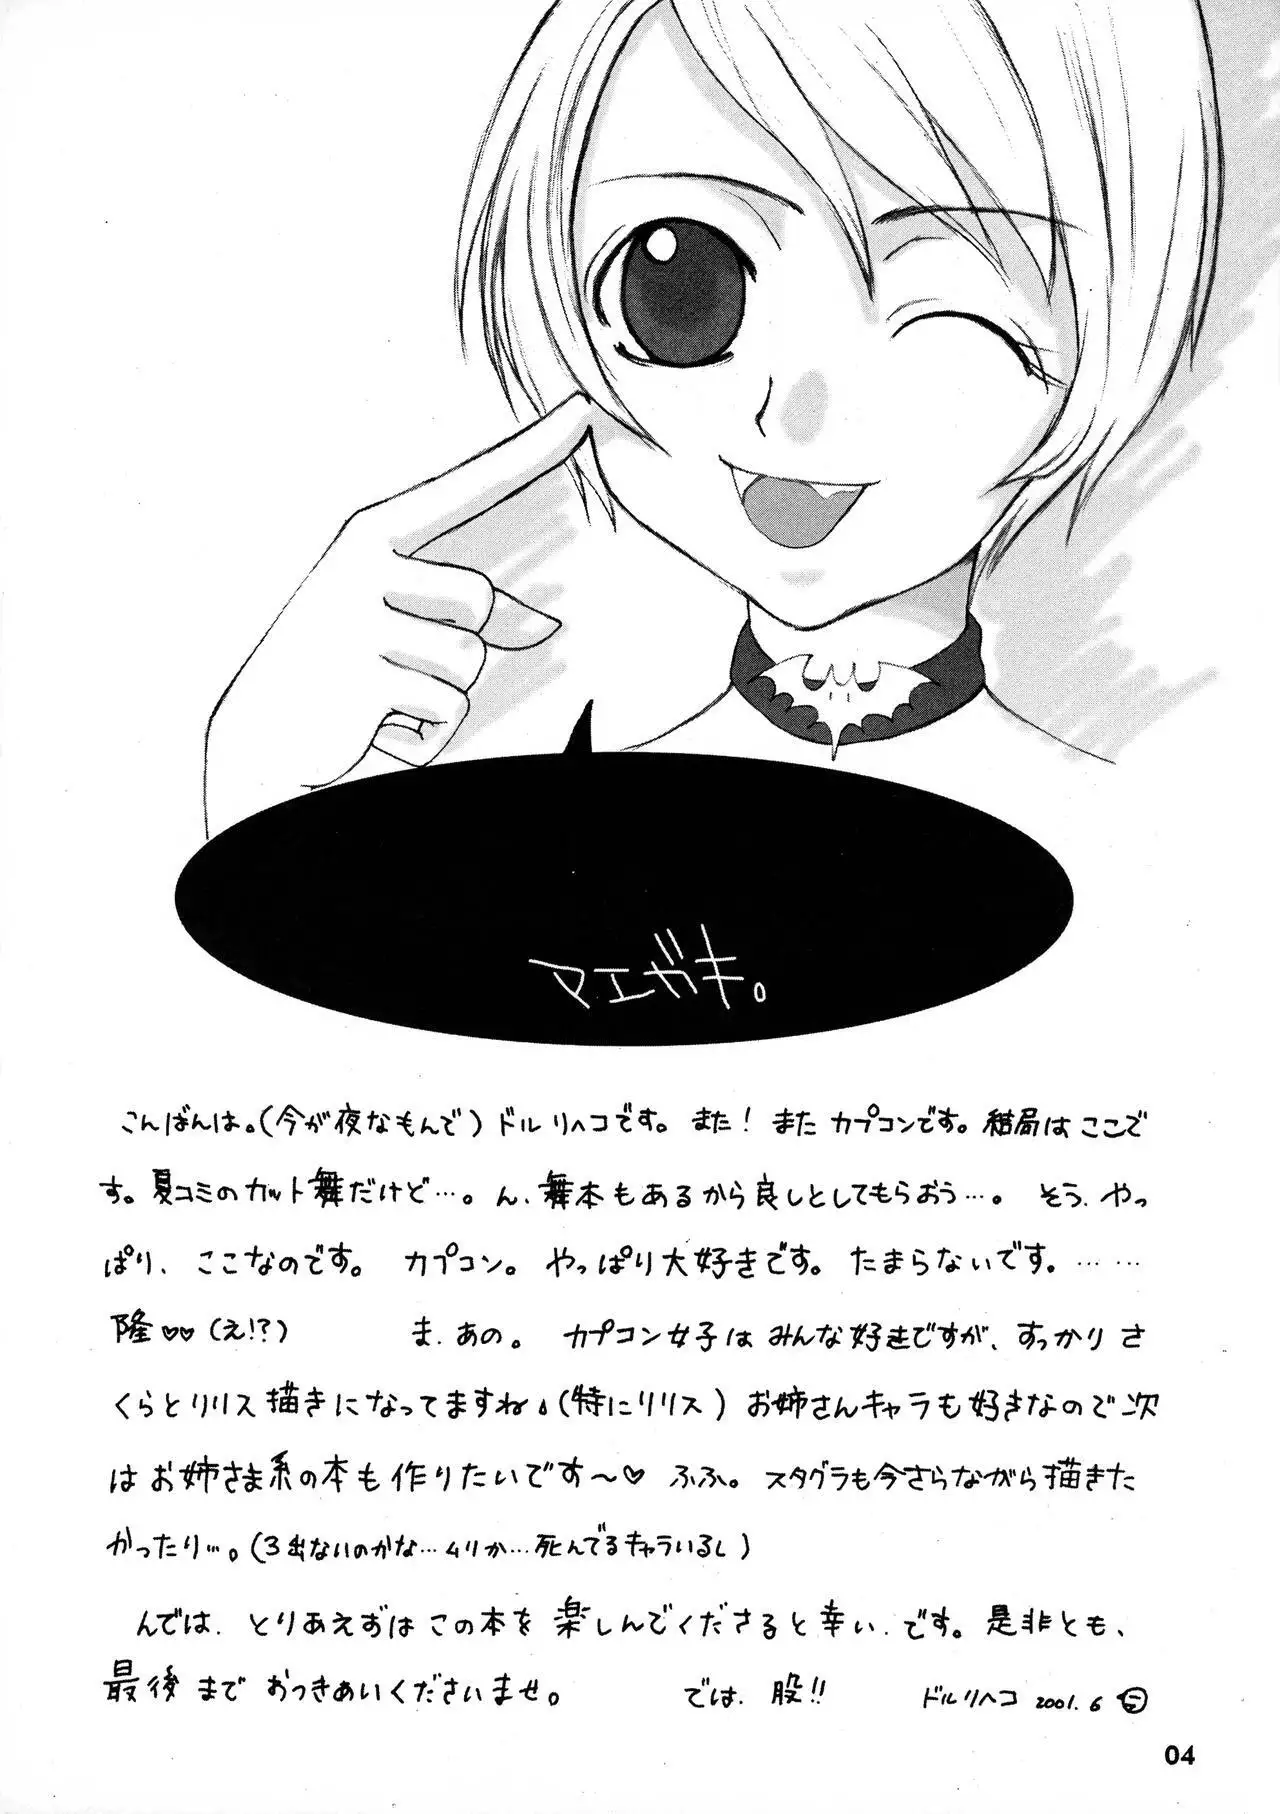 マエガキ。
こんばんは。(今が夜なもんで)ドルリヘコです。また!またカプコンです。結局はここで
す。夏コミのカット舞だけど…。ん、舞本もあるから良しとしてもらおう…。そう、やっ
ぱり、ここなのです。カプコン。やっぱり大好きです。たまらないです。……
隆♡♡(え!?) ま、あの。カプコン女子はみんな好きですが、すっかりさ
くらとリリス描きになってますね。(特にリリス)お姉さんキャラも好きなので次
はお姉さま系の本も作りたいです〜♡ ふふ。スタグラも今さらながら描きた
かったり…。(3出ないのかな…ムリか…死んでるキャラいるし)
んでは、とりあえずはこの本を楽しんでくださると幸い、です。是非とも、
最後までおつきあいくださいませ。 では、股!! ドルリヘコ 2001.6
04